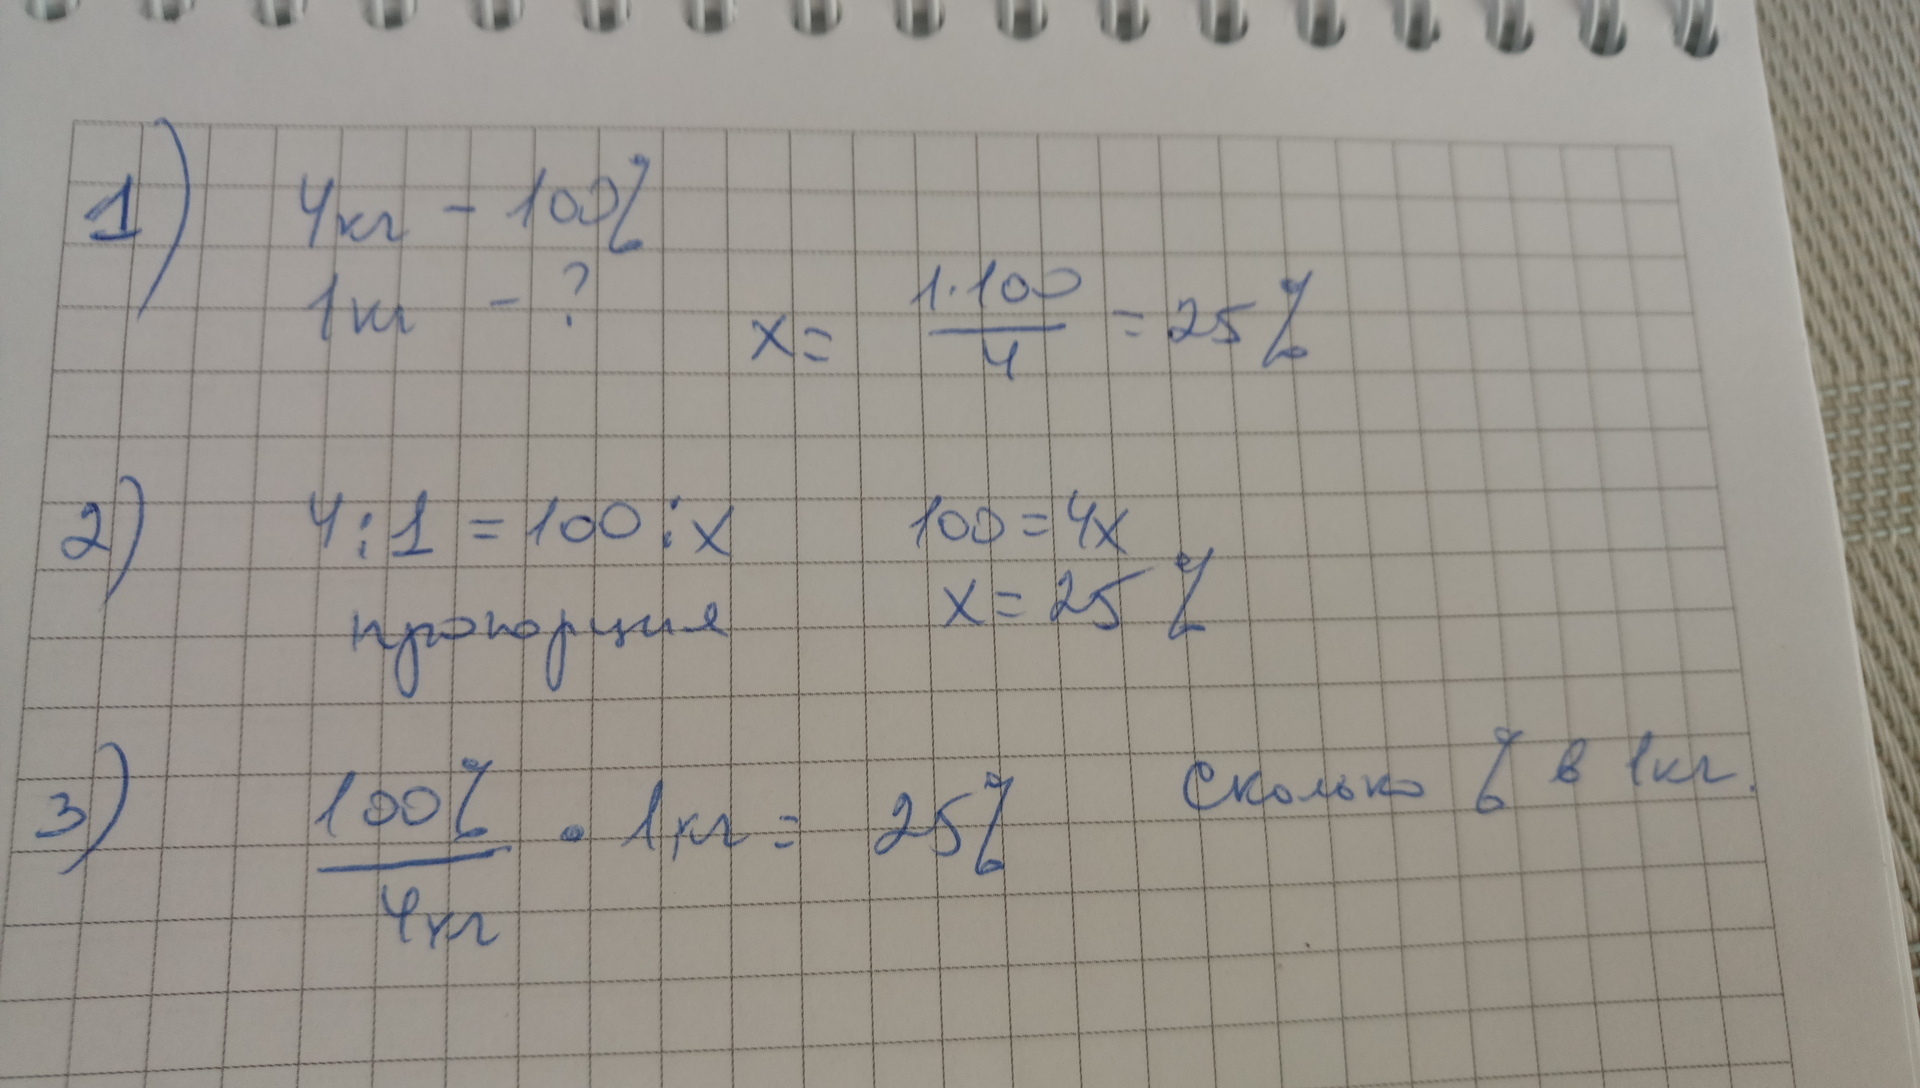 1) 4кг - 100%
1кг - ? x = 1·100 / 4 = 25%
2) 4:1 = 100:x 100 = 4x
пропорция x = 25%
3) 100% / 4кг · 1кг = 25% Сколько % в 1кг.